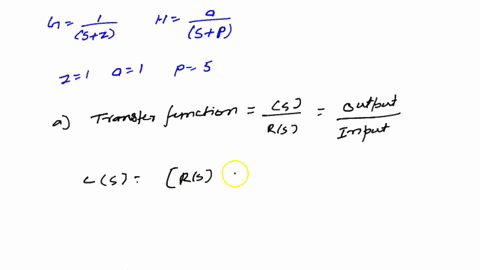 G = 1/(S+Z) H = a/(S+P)
Z=1 a=1 P=5
a) Transfer function = C(S)/R(S) = Output/Input
C(S) = [R(S)